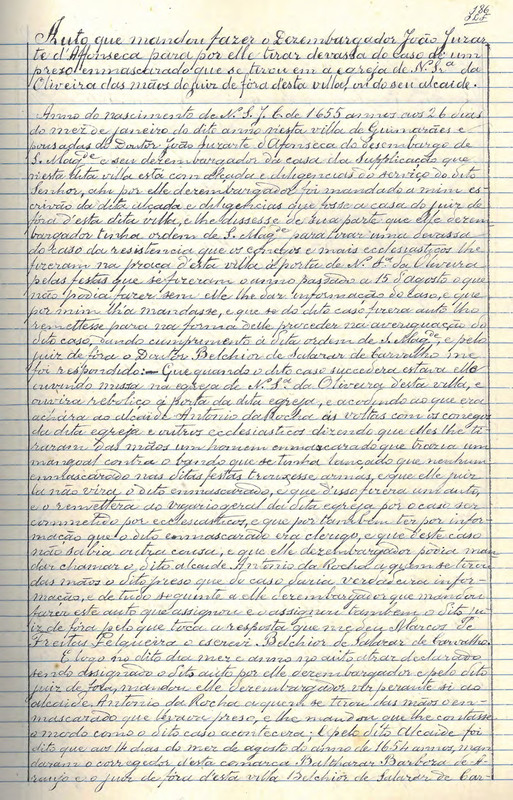 186
Auto que mandou fazer o Dezembargador João Juzar-
te d'Affonseca para por elle tirar devassa do caso de um
preso enmascarado que se tirou em a egreja de N. Sra da
Oliveira das mãos do juiz de fóra desta villa, ou do seu alcaide.
Anno do nascimento de N. S. J. C. de 1655 annos aos 26 dias
do mez de janeiro do dito anno n'esta villa de Guimarães e
pousadas do Doutor João Juzarte d'Afonseca do desembargo de
S. Magde e seu dezembargador da casa da Supplicação que
n'esta dita villa está com alçada e deligencias do serviço do dito
Senhor, ahi por elle dezembargador foi mandado a mim es-
crivão da dita alçada e deligencias que fosse a casa do juiz de
fóra d'esta dita villa, e lhe dissesse de sua parte que elle dezem-
bargador tinha ordem de S. Magde para tirar uma devassa
do caso da resistencia que os conegos e mais ecclesiasticos lhe
fizeram na praça d'esta villa á porta de N. Sra da Oliveira
pelas festas que se fizeram o anno passado a 15 d'agosto o que
não podia fazer sem elle lhe dar informação do caso, e que
por mim lh'a mandasse, e que se do dito caso fizera auto lh'o
remettesse para na forma delle proceder na averiguação do
dito caso, dando cumprimento á dita ordem de S. Magde, e pelo
juiz de fóra o Doutor Belchior de Salazar de Carvalho me
foi respondido: — Que quando o dito caso succedera estava elle
ouvindo missa na egreja de N. Sra da Oliveira d'esta villa, e
ouvira reboliço á porta da dita egreja, e acodindo ao que era
achára ao alcaide Antonio da Rocha ás voltas com os conegos
da dita egreja e outros ecclesiasticos dizendo que elles lhe ti-
raram das mãos um homem enmascarado que trazia um
mangoal contra o bando que se tinha lançado que nenhum
enmascarado nas ditas festas trouxesse armas, e que elle juiz
la não vira o dito enmascarado, e que d'isso fizera um auto,
e o remettera ao vigario geral da dita egreja por o caso ser
commettido por ecclesiasticos, e que por tambem ter por infor-
mação que o dito enmascarado era clerigo, e que d'este caso
não sabia outra cousa, e que elle dezembargador podia man-
dar chamar o dito alcaide Antonio da Rocha a quem se tirou
das mãos o dito preso que do caso daria verdadeira infor-
mação, e de tudo se guinte a elle dezembargador que mandou
fazer este auto que assignou e o assignou tambem o dito ju-
iz de fóra pelo que toca a resposta que me deu Marcos de
Freitas Felgueira o escrevi Belchior de Salazar de Carvalho.
E logo no dito dia mez e anno no auto atraz declarado
sendo assignado o dito auto por elle dezembargador e pelo dito
juiz de fóra, mandou elle dezembargador vir perante si ao
alcaide Antonio da Rocha a quem se tirou das mãos o en-
mascarado que levava preso, e lhe mandou que lhe contasse
o modo como o dito caso acontecera: E pelo dito Alcaide foi
dito que aos 14 dias do mez de agosto do anno de 1654 annos, man-
daram o corregedor d'esta comarca Balthazar Barboza de A-
raujo e o juiz de fóra d'esta villa Belchior de Salazar de Car-